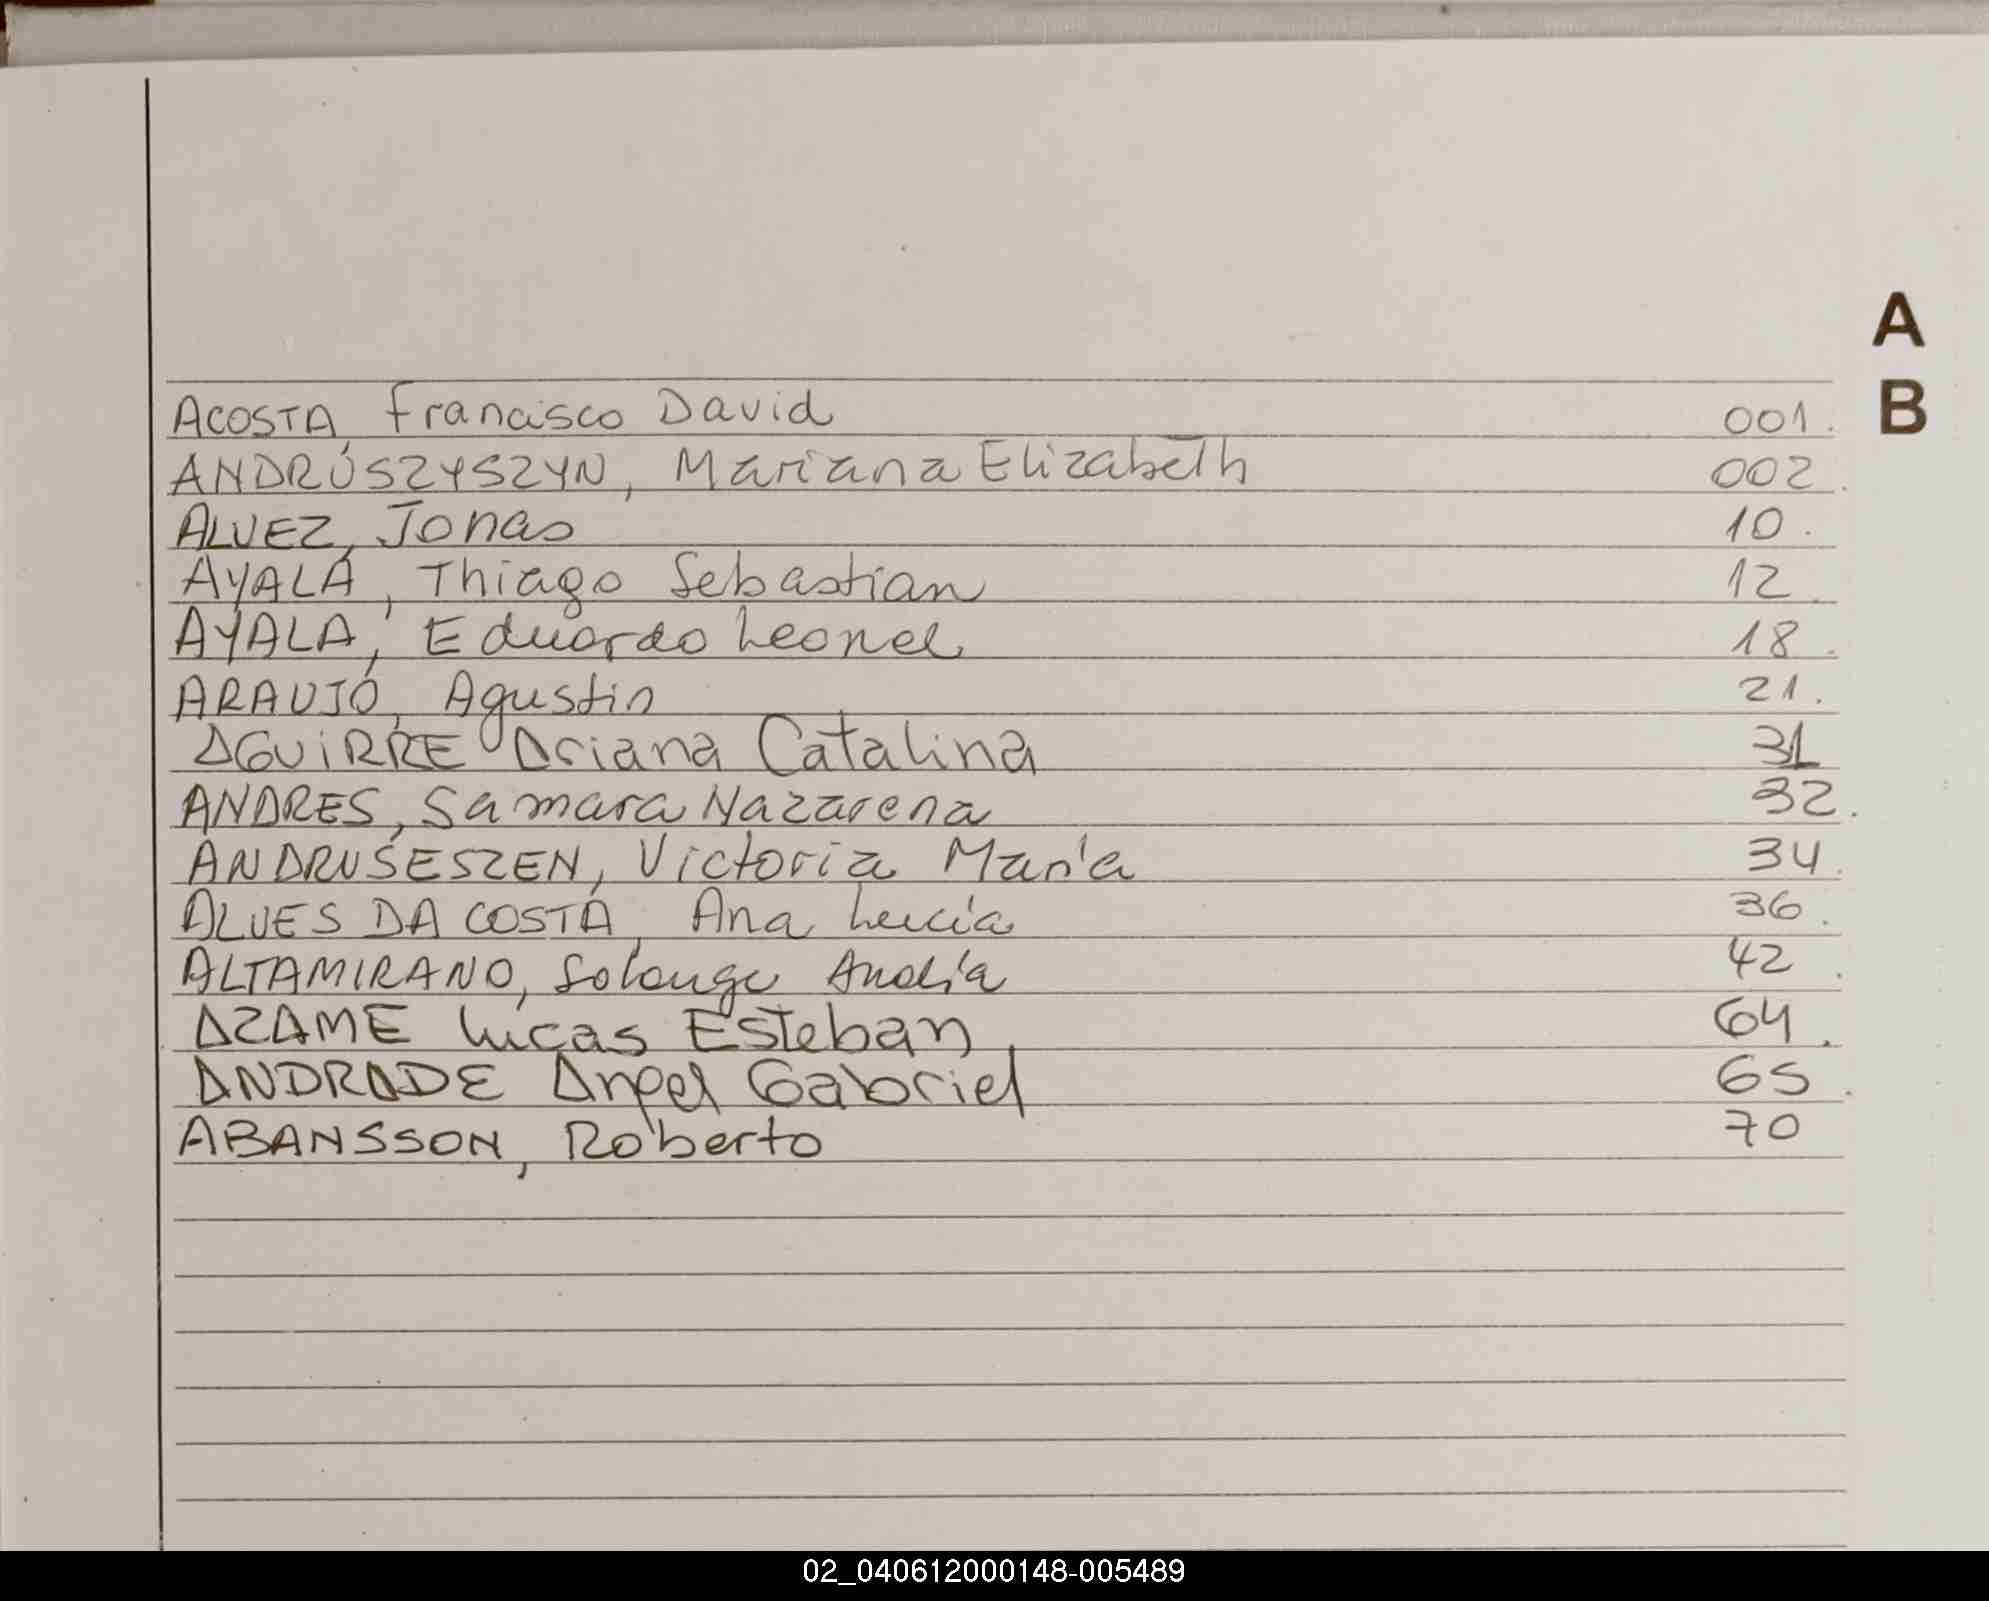 A
B
ACOSTA, Francisco David 001.
ANDRUSZYSZYN, Mariana Elizabeth 002.
ALVEZ, Jonas 10.
AYALA, Thiago Sebastian 12.
AYALA, Eduardo Leonel 18.
ARAUJO, Agustin 21.
AGUiRRE Ariana Catalina 31
ANDRES, Samara Nazarena 32.
ANDRUSESZEN, Victoria María 34.
ALVES DA COSTA, Ana Lucía 36.
ALTAMIRANO, Solange Analía 42.
AZAME Lucas Esteban 64.
ANDRADE Angel Gabriel 65.
ABANSSON, Roberto 70
02_040612000148-005489